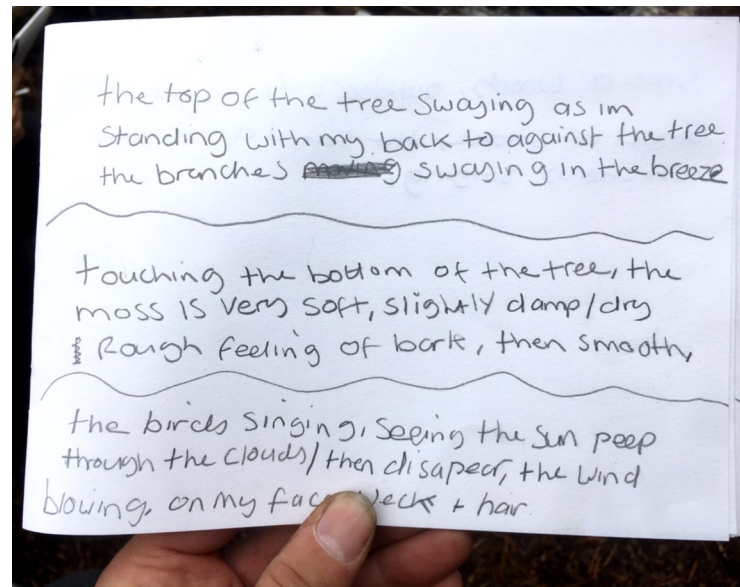 the top of the tree swaying as im
Standing with my back to against the tree
the branches swaying in the breeze
touching the bottom of the tree, the
moss is very soft, slightly damp/dry
Rough feeling of bark, then smooth,
the birds singing, seeing the sun peep
through the clouds/then disapear, the wind
blowing. on my face neck + hair.